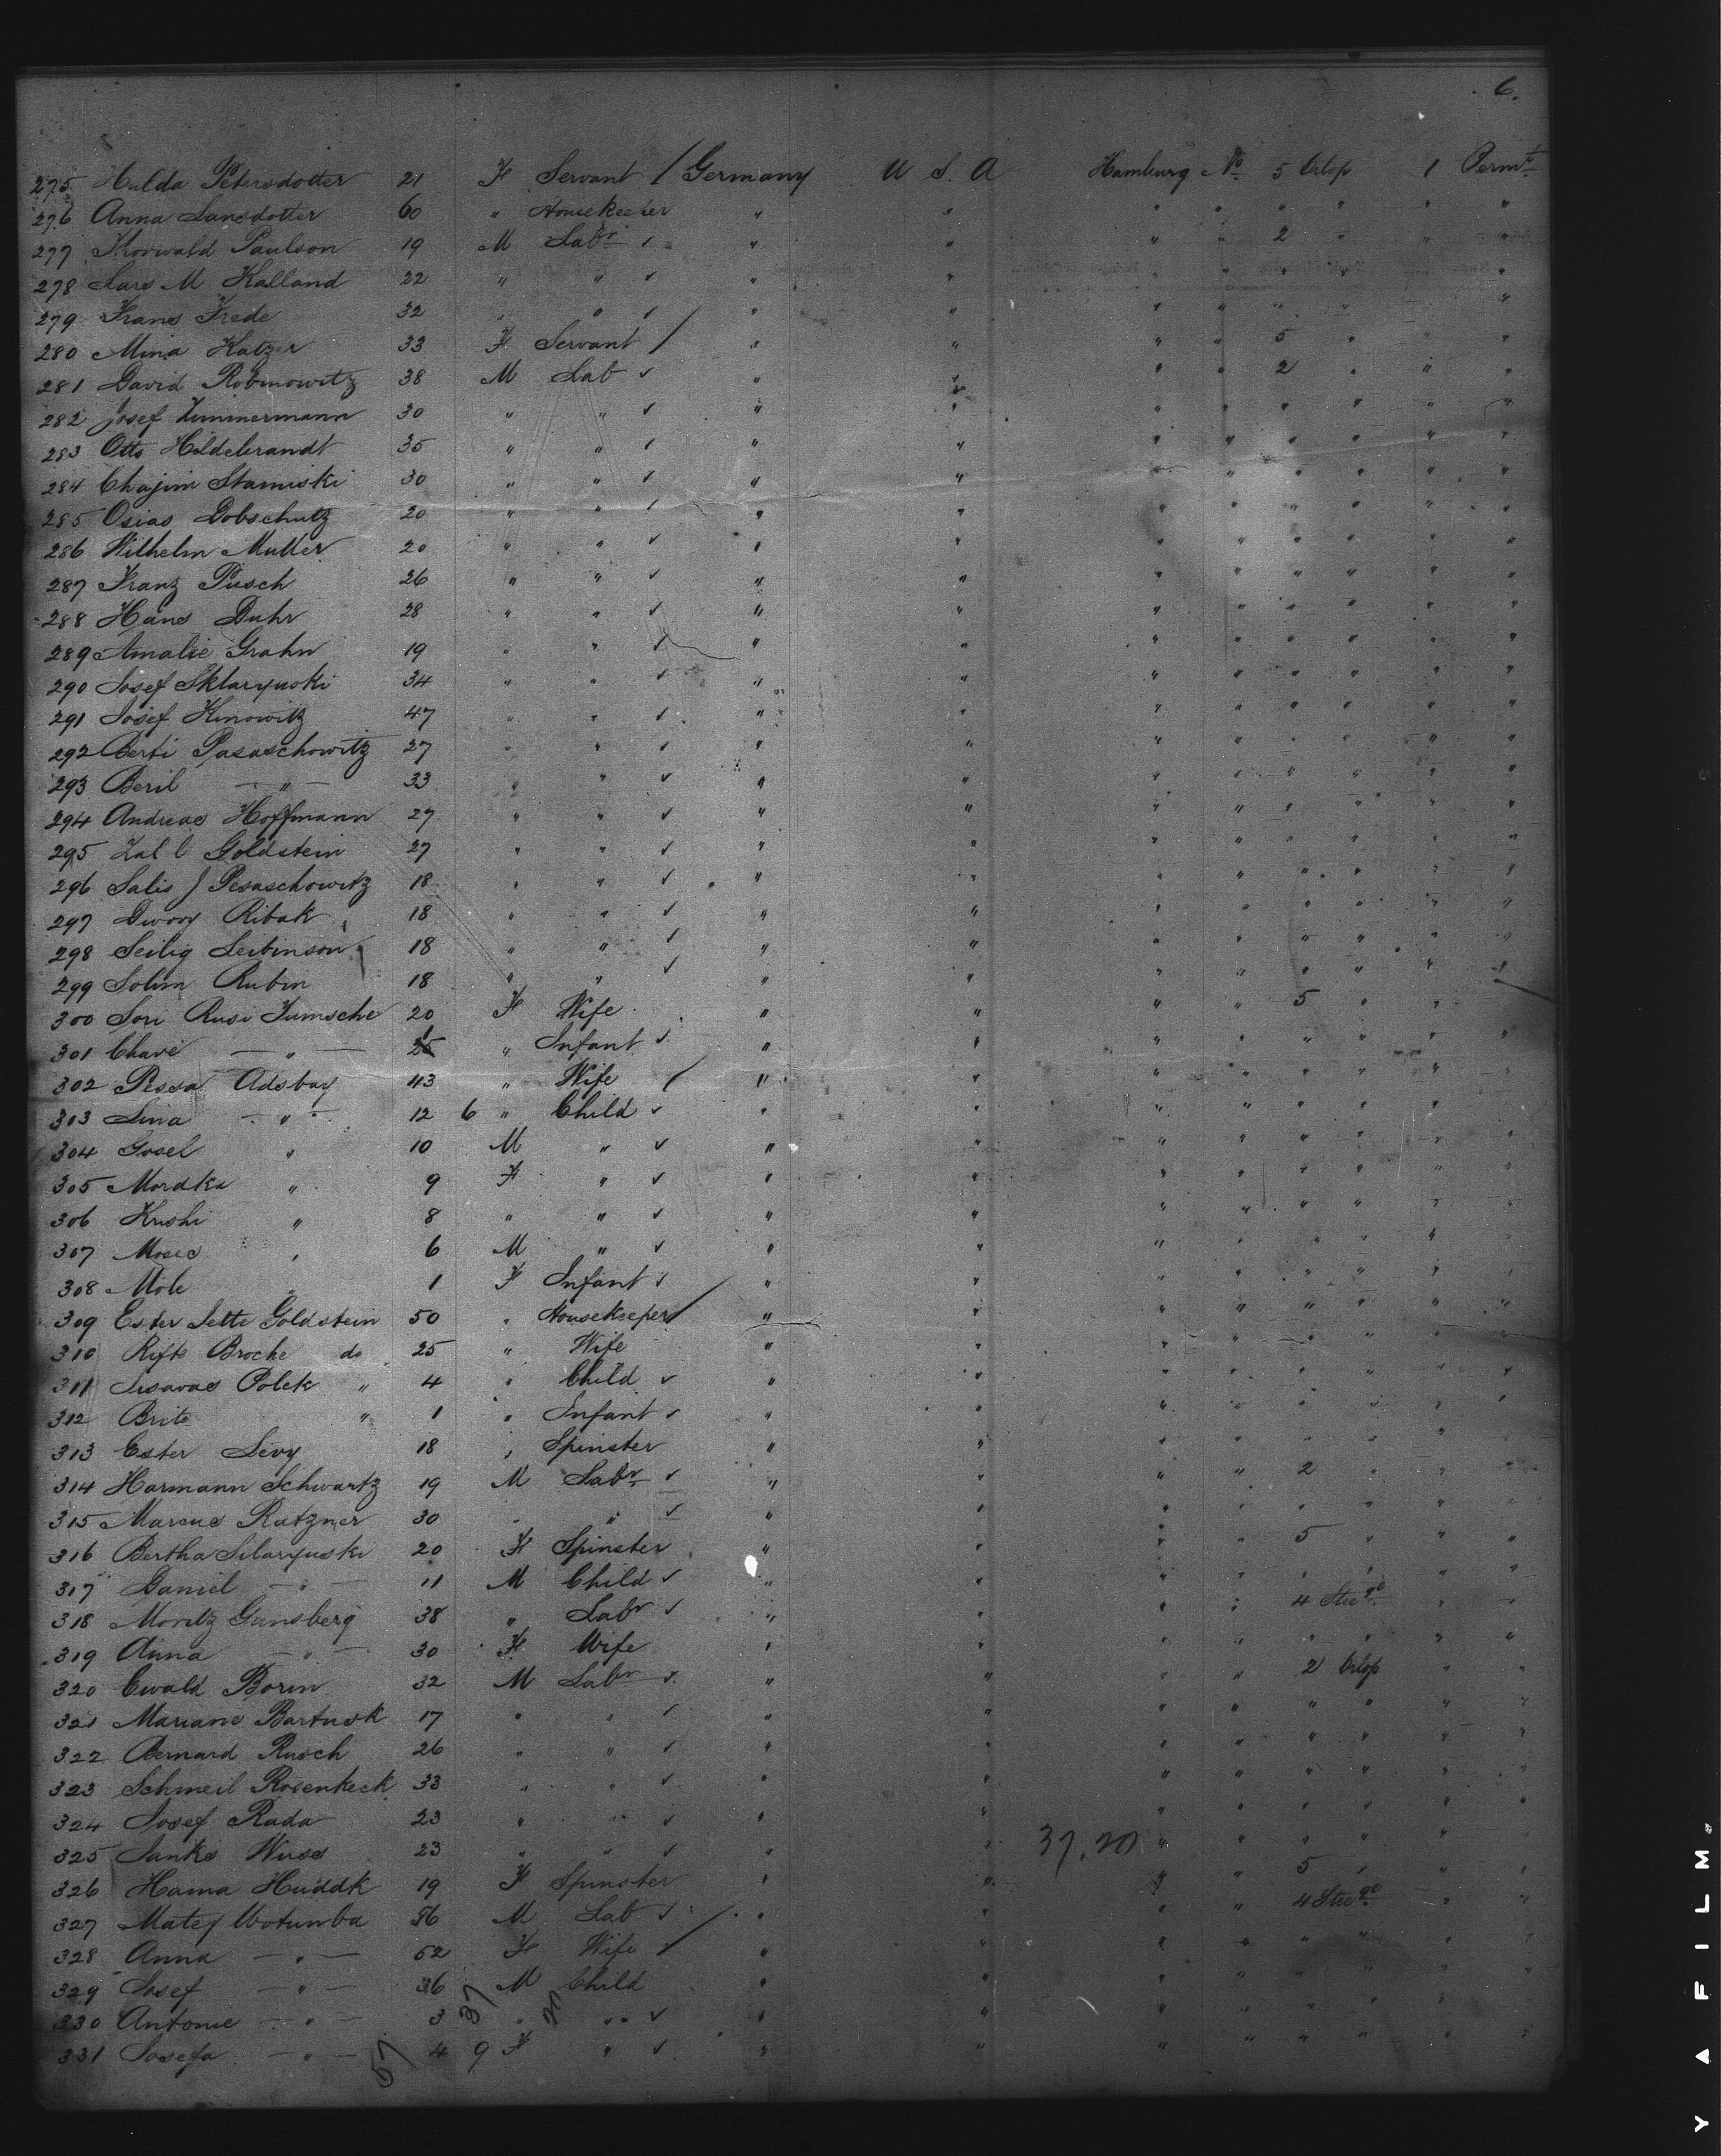 6.
275 Hulda Petersdotter 21 F Servant / Germany U S A Hamburg No. 5 Orlop 1 Permt.
276 Anna Larsdotter 60 " Housekeeper " " " " " " " "
277 Thorwald Paulson 19 M Labr ✓ " " " " 2 " " "
278 Lars M Kalland 22 " " ✓ " " " " " " " "
279 Frans Frede 32 " " ✓ " " " " " " "
280 Mina Katzer 33 F Servant / " " " " 5 " " "
281 David Robinowitz 38 M Lab ✓ " " " " 2 " " "
282 Josef Zimmermann 30 " " ✓ " " " " " " " "
283 Otto Hildebrandt 35 " " ✓ " " " " " " " "
284 Chajim Stamiski 30 " " ✓ " " " " " " " "
285 Osias Dobschutz 20 " " ✓ " " " " " " " "
286 Wilhelm Muller 20 " " ✓ " " " " " " " "
287 Franz Pusch 26 " " ✓ " " " " " " " "
288 Hans Duhr 28 " " ✓ " " " " " " " "
289 Amalie Grahn 19 " " ✓ " " " " " " " "
290 Josef Sklaryuski 34 " " ✓ " " " " " " " "
291 Josef Kinowitz 47 " " ✓ " " " " " " " "
292 Berti Pasaschowitz 27 " " ✓ " " " " " " " "
293 Beril — " — 33 " " ✓ " " " " " " " "
294 Andreas Hoffmann 27 " " ✓ " " " " " " " "
295 Zal l Goldstein 27 " " ✓ " " " " " " " "
296 Salis J Pesaschowitz 18 " " ✓ " " " " " " " "
297 Dwory Ribak 18 " " ✓ " " " " " " " "
298 Seilig Leibinson 18 " " ✓ " " " " " " " "
299 Solim Rubin 18 " " ✓ " " " " " " " "
300 Sori Rusi Jumsche 20 F Wife " " " " 5 " " "
301 Chave — " — 1 " Infant ✓ " " " " " " " "
302 Pessa Adsbay 43 " Wife / " " " " " " " "
303 Lina — " — 12 6 " Child ✓ " " " " " " " "
304 Gosel " 10 M " ✓ " " " " " " " "
305 Mordka " 9 F " ✓ " " " " " " " "
306 Krushi " 8 " " ✓ " " " " " " " "
307 Moses " 6 M " ✓ " " " " " " " "
308 Mole " 1 F Infant ✓ " " " " " " " "
309 Ester Jette Goldstein 50 " Housekeeper / " " " " " " " "
310 Rifke Broche do 25 " Wife " " " " " " " "
311 Polek " 4 " Child ✓ " " " " " " " "
312 Brite " 1 " Infant ✓ " " " " " " " "
313 Ester Levy 18 " Spinster " " " " " " " "
314 Harmann Schwartz 19 M Labr ✓ " " " " 2 " " "
315 Marcus Ratzner 30 " " ✓ " " " " " " " "
316 Bertha Silaryuski 20 F Spinster " " " " 5 " " "
317 Daniel — " — 11 M Child ✓ " " " " " " " "
318 Moritz Gunsberg 38 " Labr ✓ " " " " 4 Steege " "
319 Anna — " — 30 F Wife " " " " " " " "
320 Ewald Borin 32 M Labr ✓ " " " " 2 Orlop " "
321 Mariane Bartusk 17 " " ✓ " " " " " " " "
322 Bernard Rusch 26 " " ✓ " " " " " " " "
323 Schmeil Rosenkeck 33 " " ✓ " " " " " " " "
324 Josef Rada 23 " " ✓ " " " " " " " "
325 Janks Wuss 23 " " ✓ " " 37.20 " " " " " "
326 Hama Huddk 19 F Spinster " " " " 5 " " "
327 Matej Wotumba 56 M Lab ✓ / " " " " 4 Steege " "
328 Anna — " — 52 F Wife ✓ " " " " " " " "
329 Josef — " — 36 M Child " " " " " " " "
330 Antonie — " — 3 " " ✓ " " " " " " " "
331 Josefa — " — 4 9 F " ✓ " " " " " " " "
57 37 20
Y A FILM.